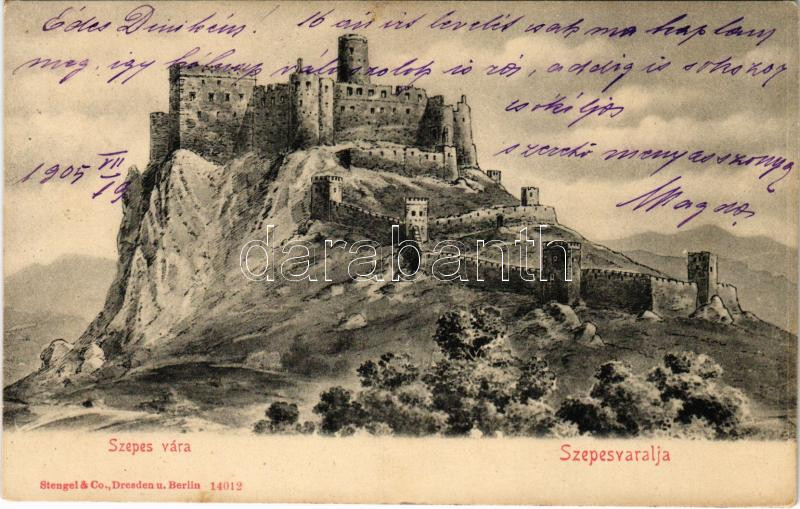 Édes Dinikém! 16 án írt levelét csak ma kaptam
meg, így holnap válaszolok is rá, addig is sokszor
csókolja
szerető menyasszonya
Magda
1905 VII
19
darabanth
Szepes vára
Szepesvaralja
Stengel & Co., Dresden u. Berlin 14012